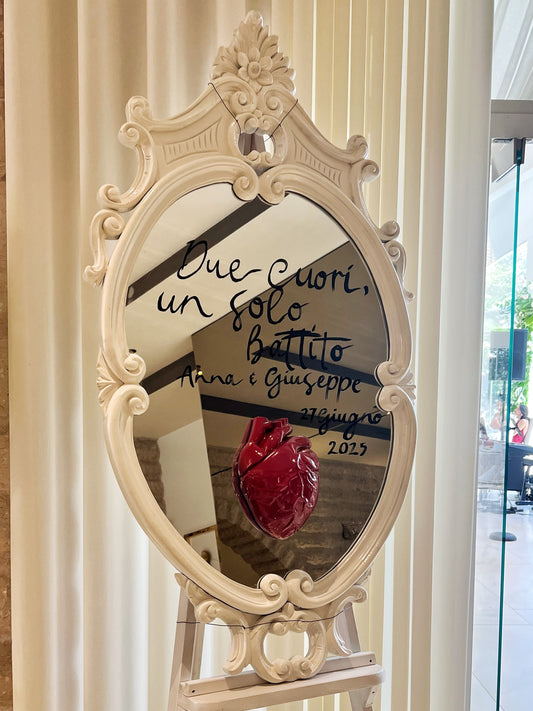 Due cuori,
un solo
Battito
Anna e Giuseppe
27 Giugno
2025